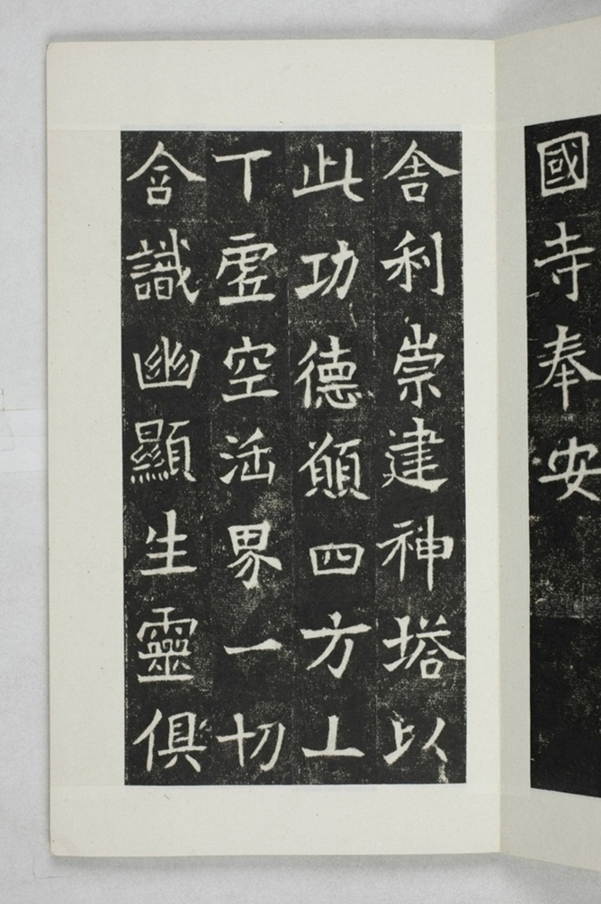 國寺奉安
舎利崇建神塔以
此功德願四方上
下虛空法界一切
含識幽顯生靈俱